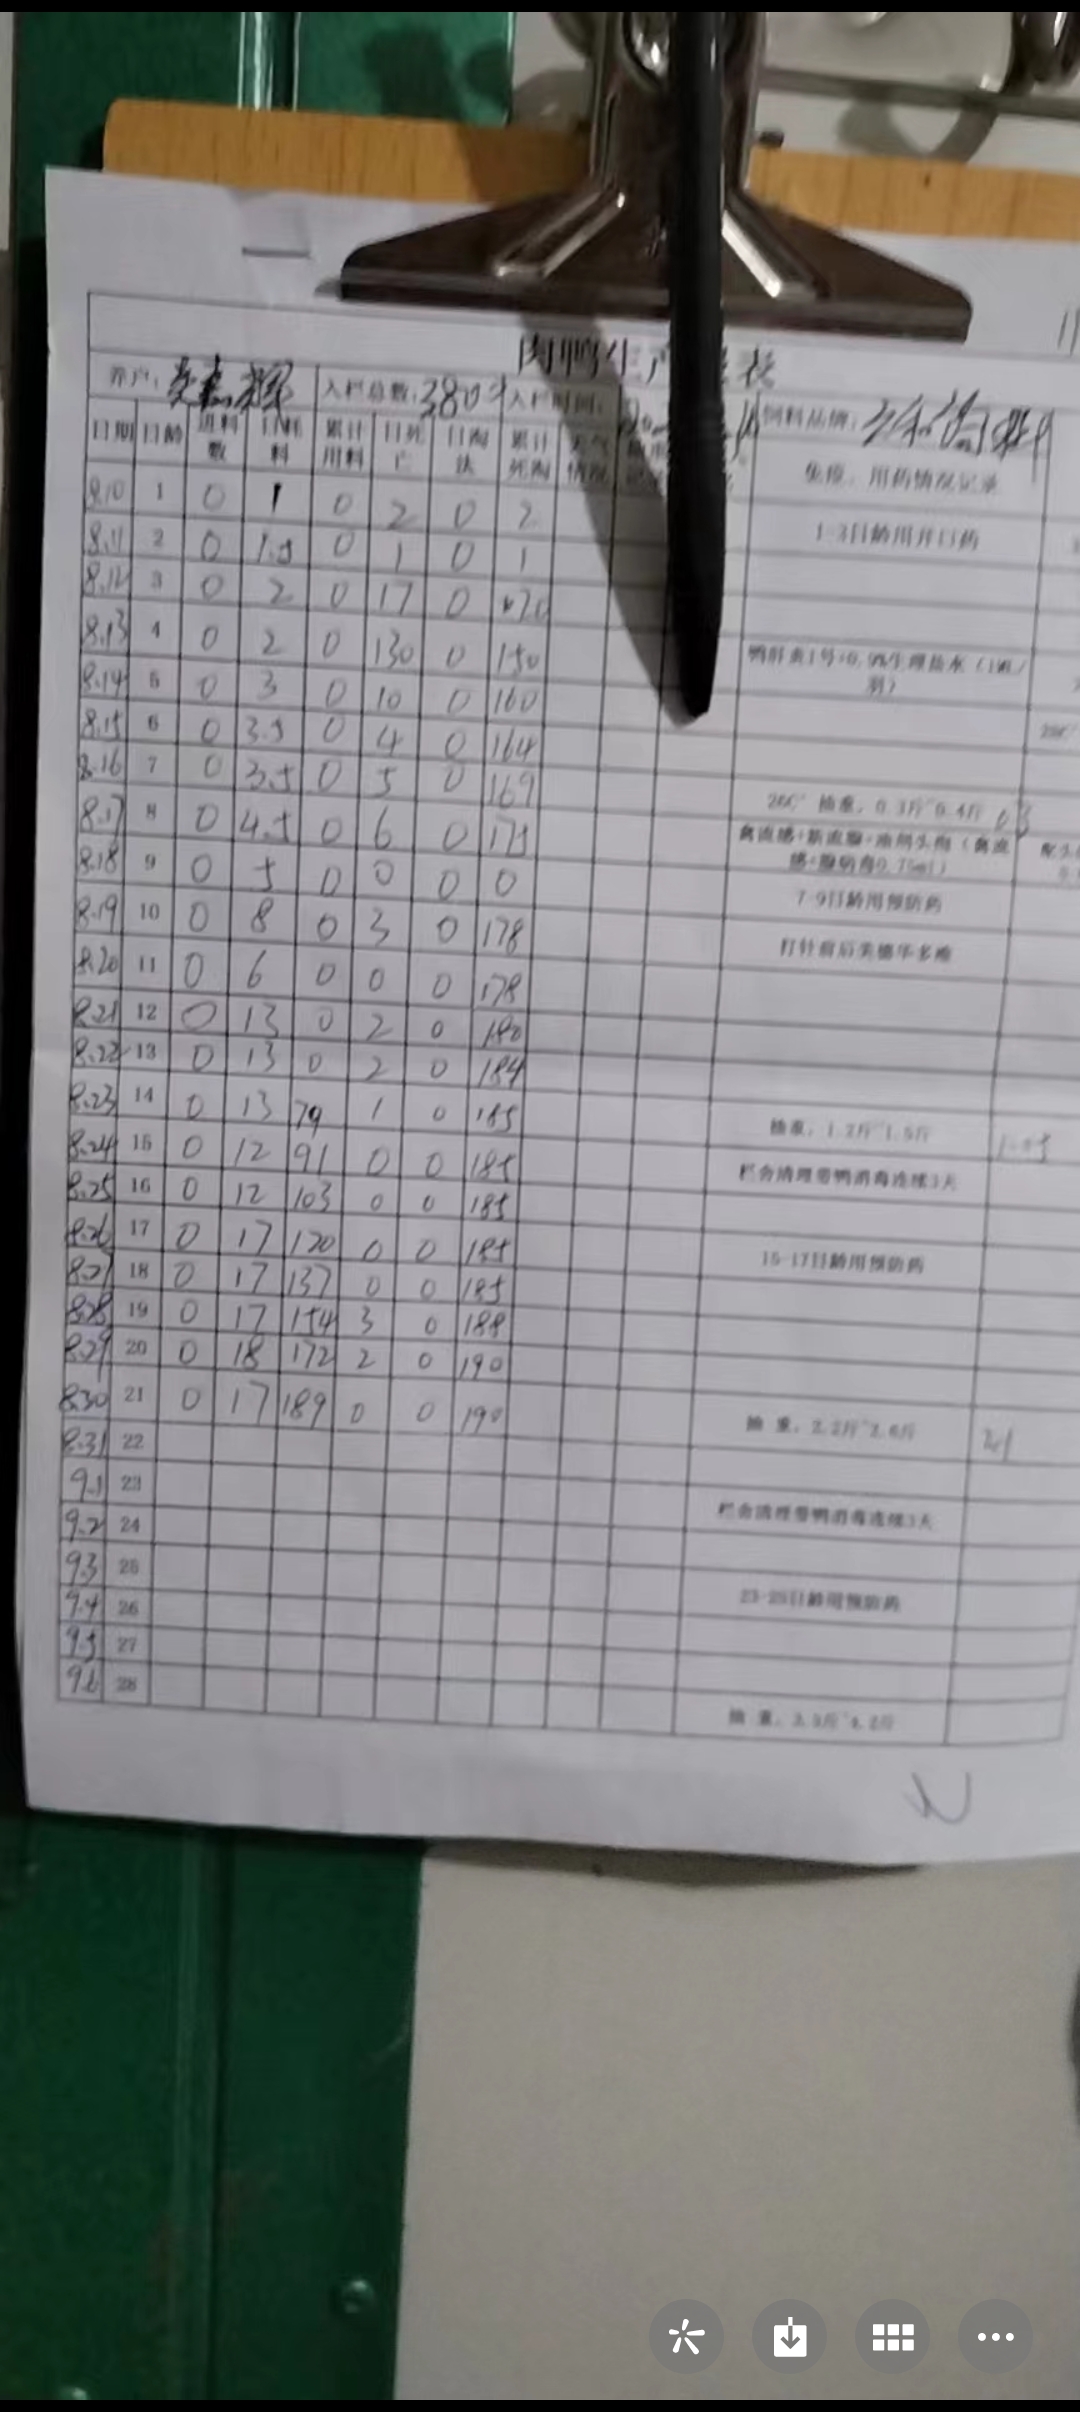 肉鸭生产 表
养户: 入栏总数:3804 入栏时间: 饲料品牌:
日期 日龄 进料数 日耗料 累计用料 日死亡 日淘汰 累计死淘 天气情况 免疫、用药情况记录
8.10 1 0 1 0 2 0 2
1-3日龄用开口药
8.11 2 0 1.5 0 1 0 1
8.12 3 0 2 0 17 0 20
8.13 4 0 2 0 130 0 150
鸭肝炎1号+0.9%生理盐水(1ml/羽)
8.14 5 0 3 0 10 0 160
8.15 6 0 3.5 0 4 0 164
8.16 7 0 3.5 0 5 0 169
抽重:0.3斤~0.4斤 0.3
8.17 8 0 4.5 0 6 0 175
8.18 9 0 5 0 0 0 0
7-9日龄用预防药
8.19 10 0 8 0 3 0 178
打针前后关德华多维
8.20 11 0 6 0 0 0 178
8.21 12 0 13 0 2 0 180
8.22 13 0 13 0 2 0 184
8.23 14 0 13 79 1 0 185
抽重:1.2斤~1.5斤
8.24 15 0 12 91 0 0 185
栏舍清理带鸭消毒连续3天
8.25 16 0 12 103 0 0 185
8.26 17 0 17 120 0 0 185
15-17日龄用预防药
8.27 18 0 17 137 0 0 185
8.28 19 0 17 154 3 0 188
8.29 20 0 18 172 2 0 190
8.30 21 0 17 189 0 0 190
抽 重:2.2斤~2.6斤
8.31 22
9.1 23
栏舍清理带鸭消毒连续3天
9.2 24
9.3 25
23-25日龄用预防药
9.4 26
9.5 27
9.6 28
抽 重:3.3斤~4.2斤